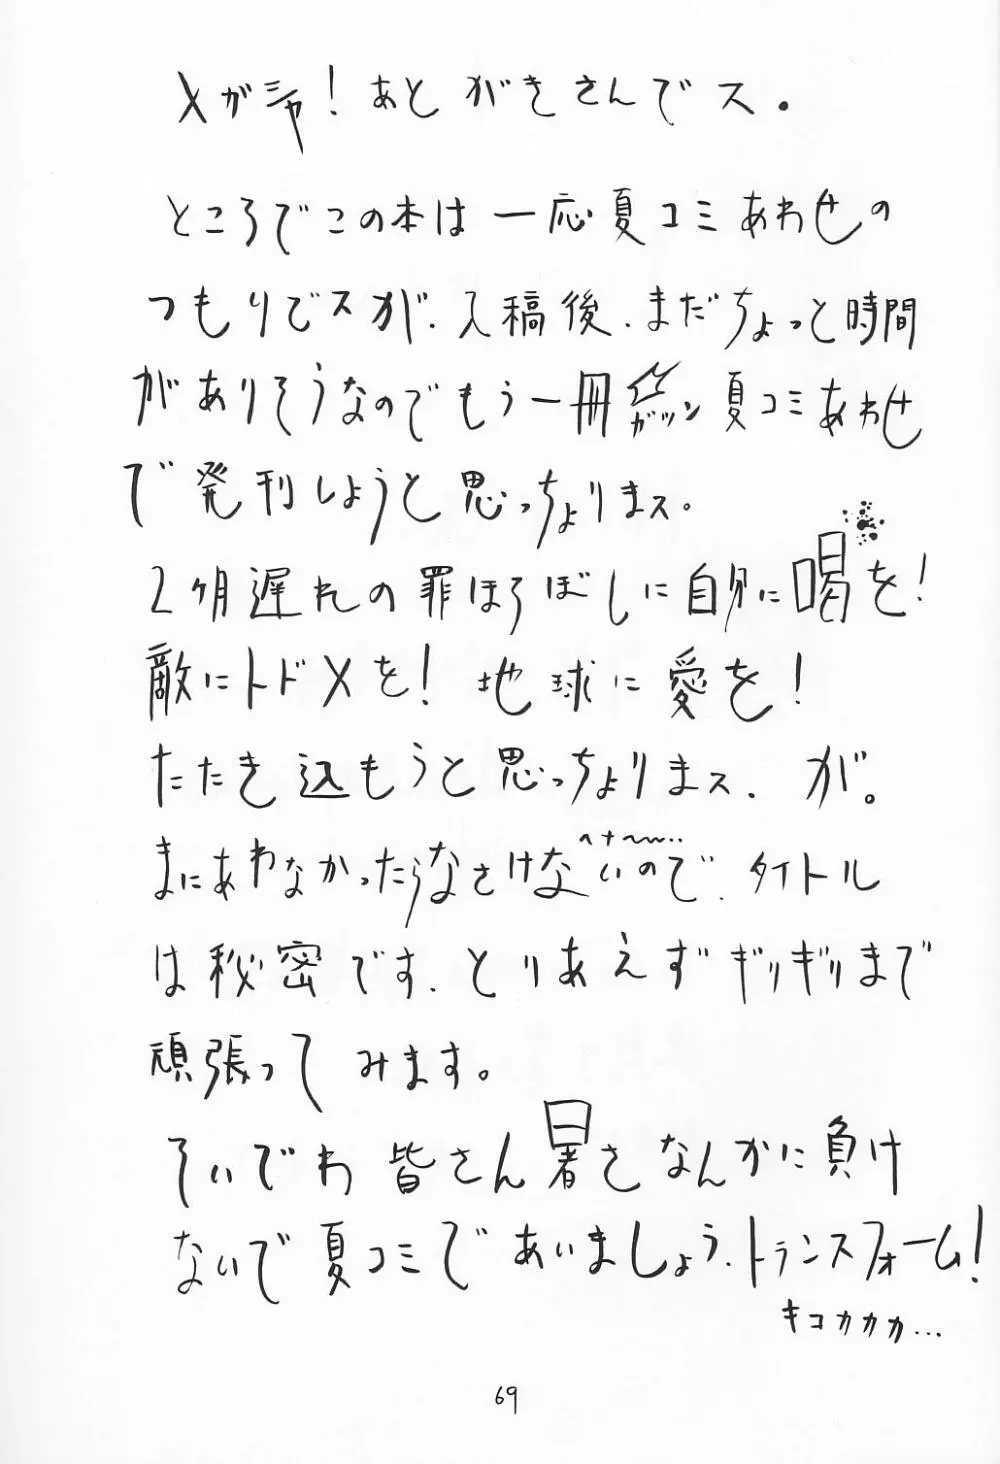 メガシャ！あとがきさんでス．
ところでこの本は一応夏コミあわせの
つもりでスが、入稿後、まだちょっと時間
がありそうなのでもう一冊ガツン夏コミあわせ
で発刊しようと思っちょりまス。
2ヶ月遅れの罪ほろぼしに自分に喝を！
敵にトドメを！地球に愛を！
たたき込もうと思っちょりまス、が。
ヘナ〜…
まにあわなかったらなさけないので、タイトル
は秘密です、とりあえずギリギリまで
頑張ってみます。
そいでわ皆さん暑さなんかに負け
ないで夏コミであいましょう、トランスフォーム！
キコカカカ…
69